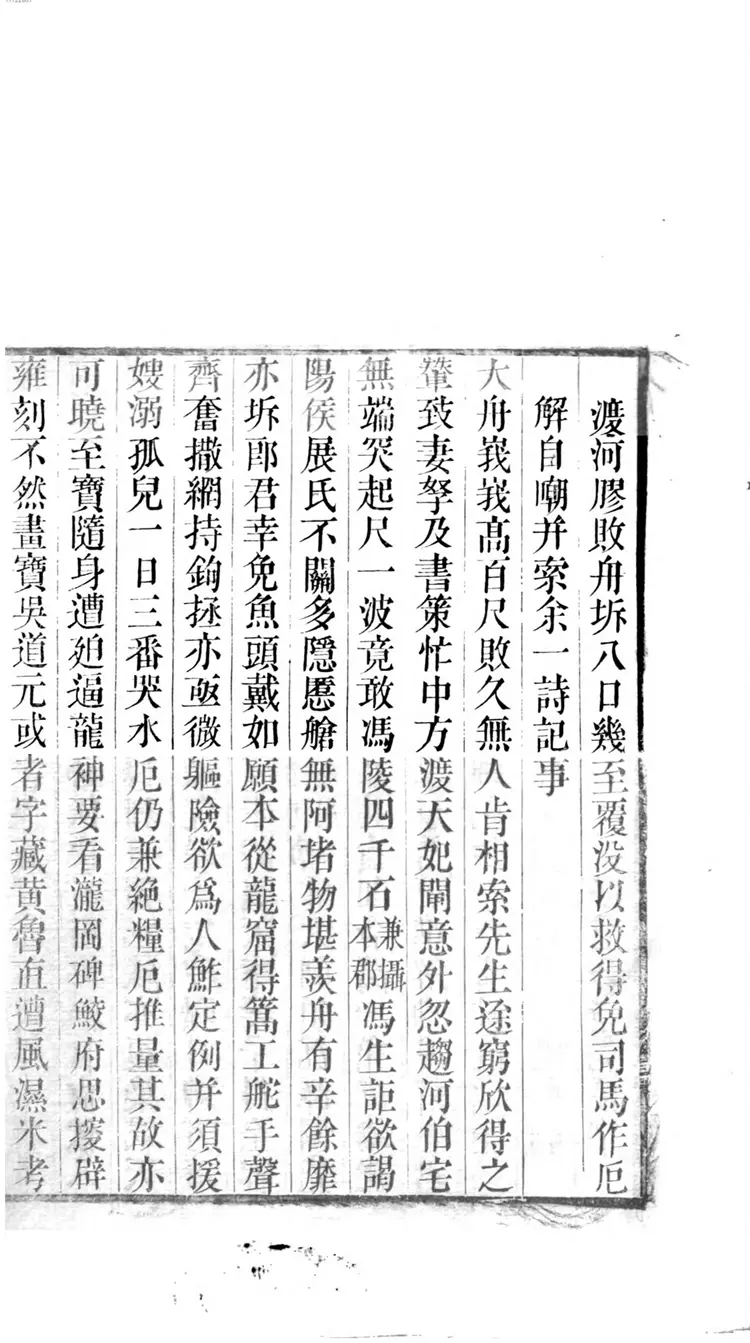 渡河膠敗舟坼八口幾至覆没以救得免司馬作厄
解自嘲并索余一詩記事
大舟峩峩高百尺敗久無人肯相索先生途窮欣得之
輦致妻孥及書策忙中方渡天妃閘意外忽趨河伯宅
無端突起尺一波竟敢馮陵四千石兼攝本郡馮生詎欲謁
陽侯展氏不關多隱慝艙無阿堵物堪羨舟有辛餘靡
亦坼郎君幸免魚頭戴如願本從龍窟得篙工舵手聲
齊奮撒網持鉤拯亦亟微軀險欲爲人鮓定例并須援
嫂溺孤兒一日三番哭水厄仍兼絶糧厄推量其故亦
可曉至寶隨身遭迫逼龍神要看瀧岡碑鮫府思摉辟
雍刻不然畫寶吳道元或者字藏黄魯直遭風濕米考